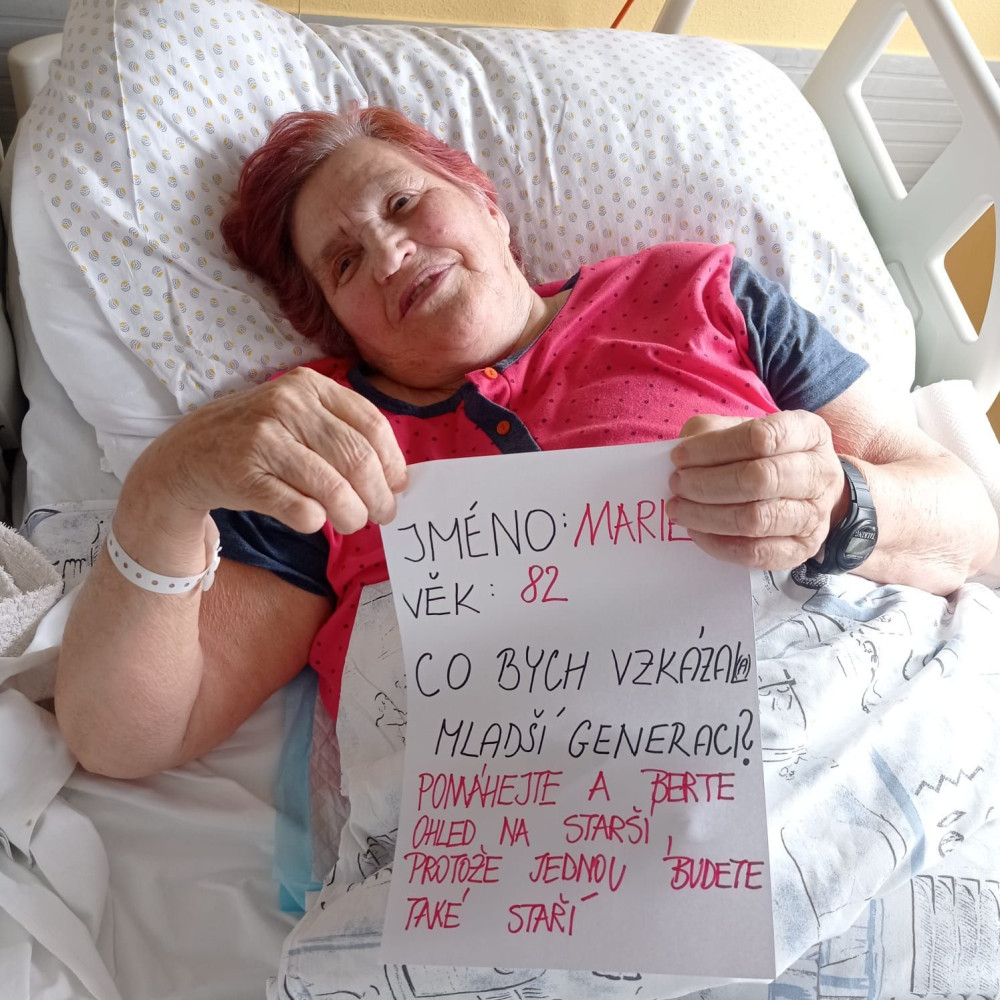 JMÉNO: MARIE
VĚK: 82
CO BYCH VZKÁZAL(A)
MLADŠÍ GENERACI?
POMÁHEJTE A BERTE
OHLED NA STARŠÍ,
PROTOŽE JEDNOU BUDETE
TAKÉ STAŘÍ